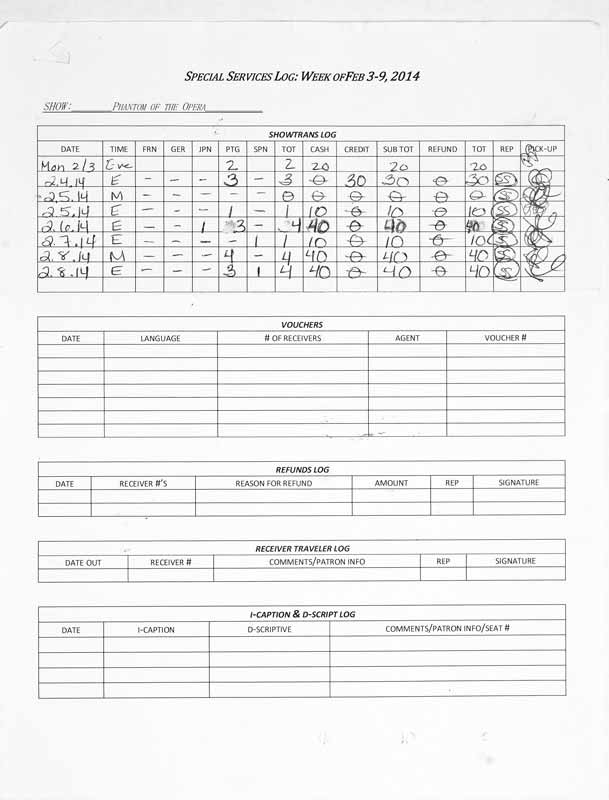 SPECIAL SERVICES LOG: WEEK OF FEB 3-9, 2014
SHOW:_______PHANTOM OF THE OPERA__________
SHOWTRANS LOG
DATE TIME FRN GER JPN PTG SPN TOT CASH CREDIT SUB TOT REFUND TOT REP PICK-UP
Mon 2/3 Eve 2 2 20 20 20
2.4.14 E - - - 3 - 3 0 30 30 0 30 SS
2.5.14 M - - - - - 0 0 0 0 0 0 SS
2.5.14 E - - - 1 - 1 10 0 10 0 10 SS
2.6.14 E - - 1 3 - 4 40 0 40 0 40 SS
2.7.14 E - - - - 1 1 10 0 10 0 10 SS
2.8.14 M - - - 4 - 4 40 0 40 0 40 SS
2.8.14 E - - - 3 1 4 40 0 40 0 40 SS
VOUCHERS
DATE LANGUAGE # OF RECEIVERS AGENT VOUCHER #
REFUNDS LOG
DATE RECEIVER #'S REASON FOR REFUND AMOUNT REP SIGNATURE
RECEIVER TRAVELER LOG
DATE OUT RECEIVER # COMMENTS/PATRON INFO REP SIGNATURE
I-CAPTION & D-SCRIPT LOG
DATE I-CAPTION D-SCRIPTIVE COMMENTS/PATRON INFO/SEAT #